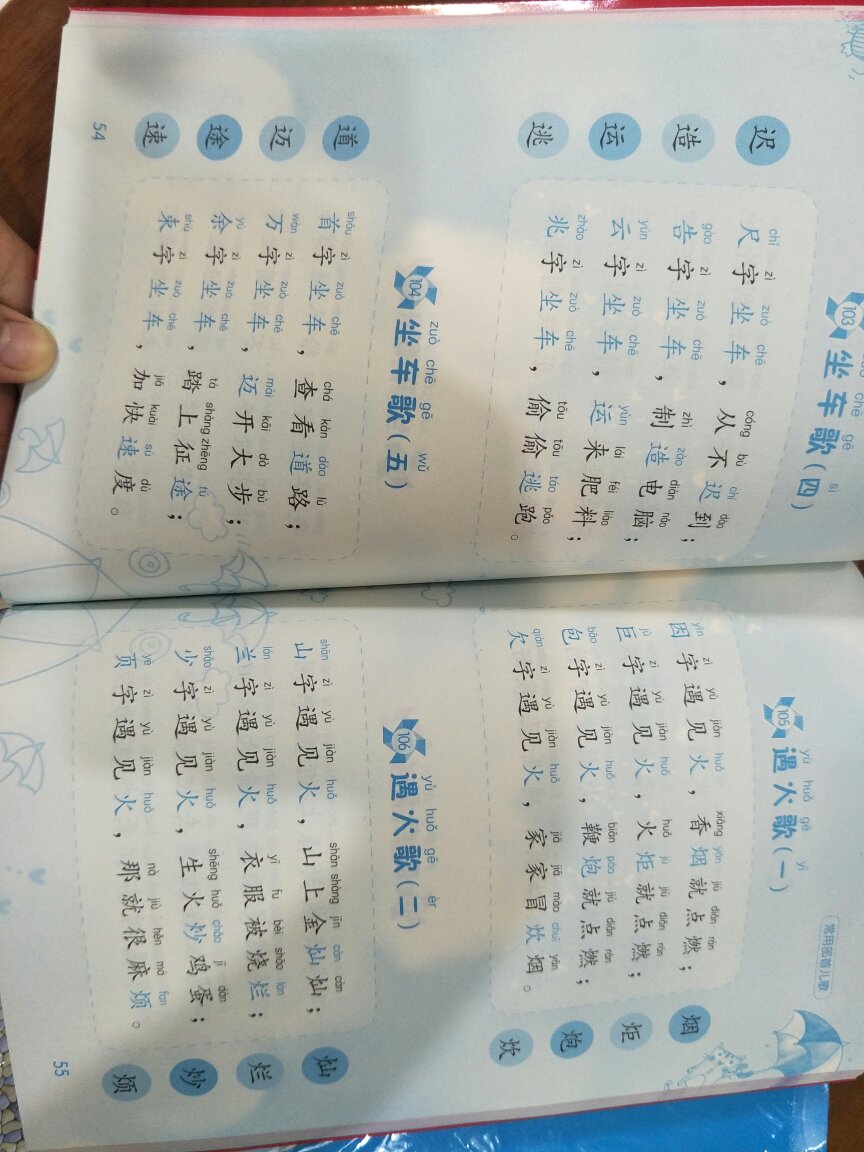 chē gē sì
103 坐车歌（四）
chǐ zì zuò chē cóng bù chí dào
迟 尺字坐车，从不迟到；
gào zì zuò chē zhì zào diàn nǎo
造 告字坐车，制造电脑；
yún zì zuò chē yùn lái féi liào
运 云字坐车，运来肥料；
zhào zì zuò chē tōu tōu táo pǎo
逃 兆字坐车，偷偷逃跑。
zuò chē gē wǔ
104 坐车歌（五）
shǒu zì zuò chē chá kàn dào lù
道 首字坐车，查看道路；
wàn zì zuò chē mài kāi dà bù
迈 万字坐车，迈开大步；
yú zì zuò chē tà shàng zhēng tú
途 余字坐车，踏上征途；
shù zì zuò chē jiā kuài sù dù
速 束字坐车，加快速度。
54
常用部首儿歌
yù huǒ gē yī
105 遇火歌（一）
yīn zì yù jiàn huǒ xiāng yān jiù diǎn rán
因字遇见火，香烟就点燃； 烟
jù zì yù jiàn huǒ huǒ jù jiù diǎn rán
巨字遇见火，火炬就点燃； 炬
bāo zì yù jiàn huǒ biān pào jiù diǎn rán
包字遇见火，鞭炮就点燃； 炮
qiàn zì yù jiàn huǒ jiā jiā mào chuī yān
欠字遇见火，家家冒炊烟。 炊
yù huǒ gē èr
106 遇火歌（二）
shān zì yù jiàn huǒ shān shàng jīn càn càn
山字遇见火，山上金灿灿； 灿
lán zì yù jiàn huǒ yī fu bèi shāo làn
兰字遇见火，衣服被烧烂； 烂
shǎo zì yù jiàn huǒ shēng huǒ chǎo jī dàn
少字遇见火，生火炒鸡蛋； 炒
yè zì yù jiàn huǒ nà jiù hěn má fan
页字遇见火，那就很麻烦。 烦
55